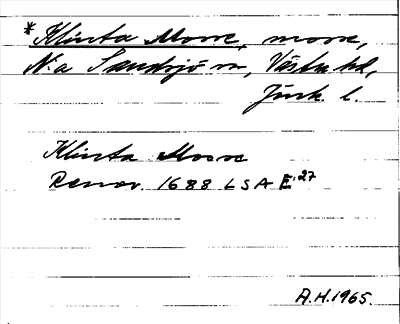 *Klinta Mosse, mosse,
N:a Sandsjö sn, Västra hd,
Jönk. l.
Klinta Mosse
Renov. 1688 LSA E:27
A.H. 1965.